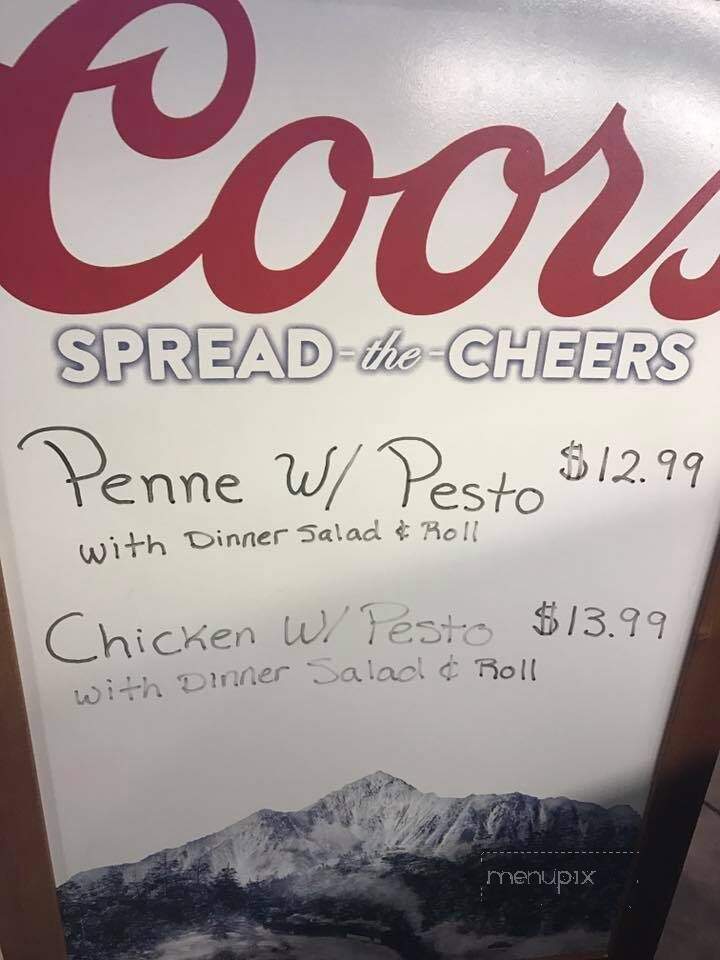 Coors
SPREAD-the-CHEERS
Penne W/ Pesto $12.99
with Dinner Salad & Roll
Chicken W/ Pesto $13.99
with Dinner Salad & Roll
menupix